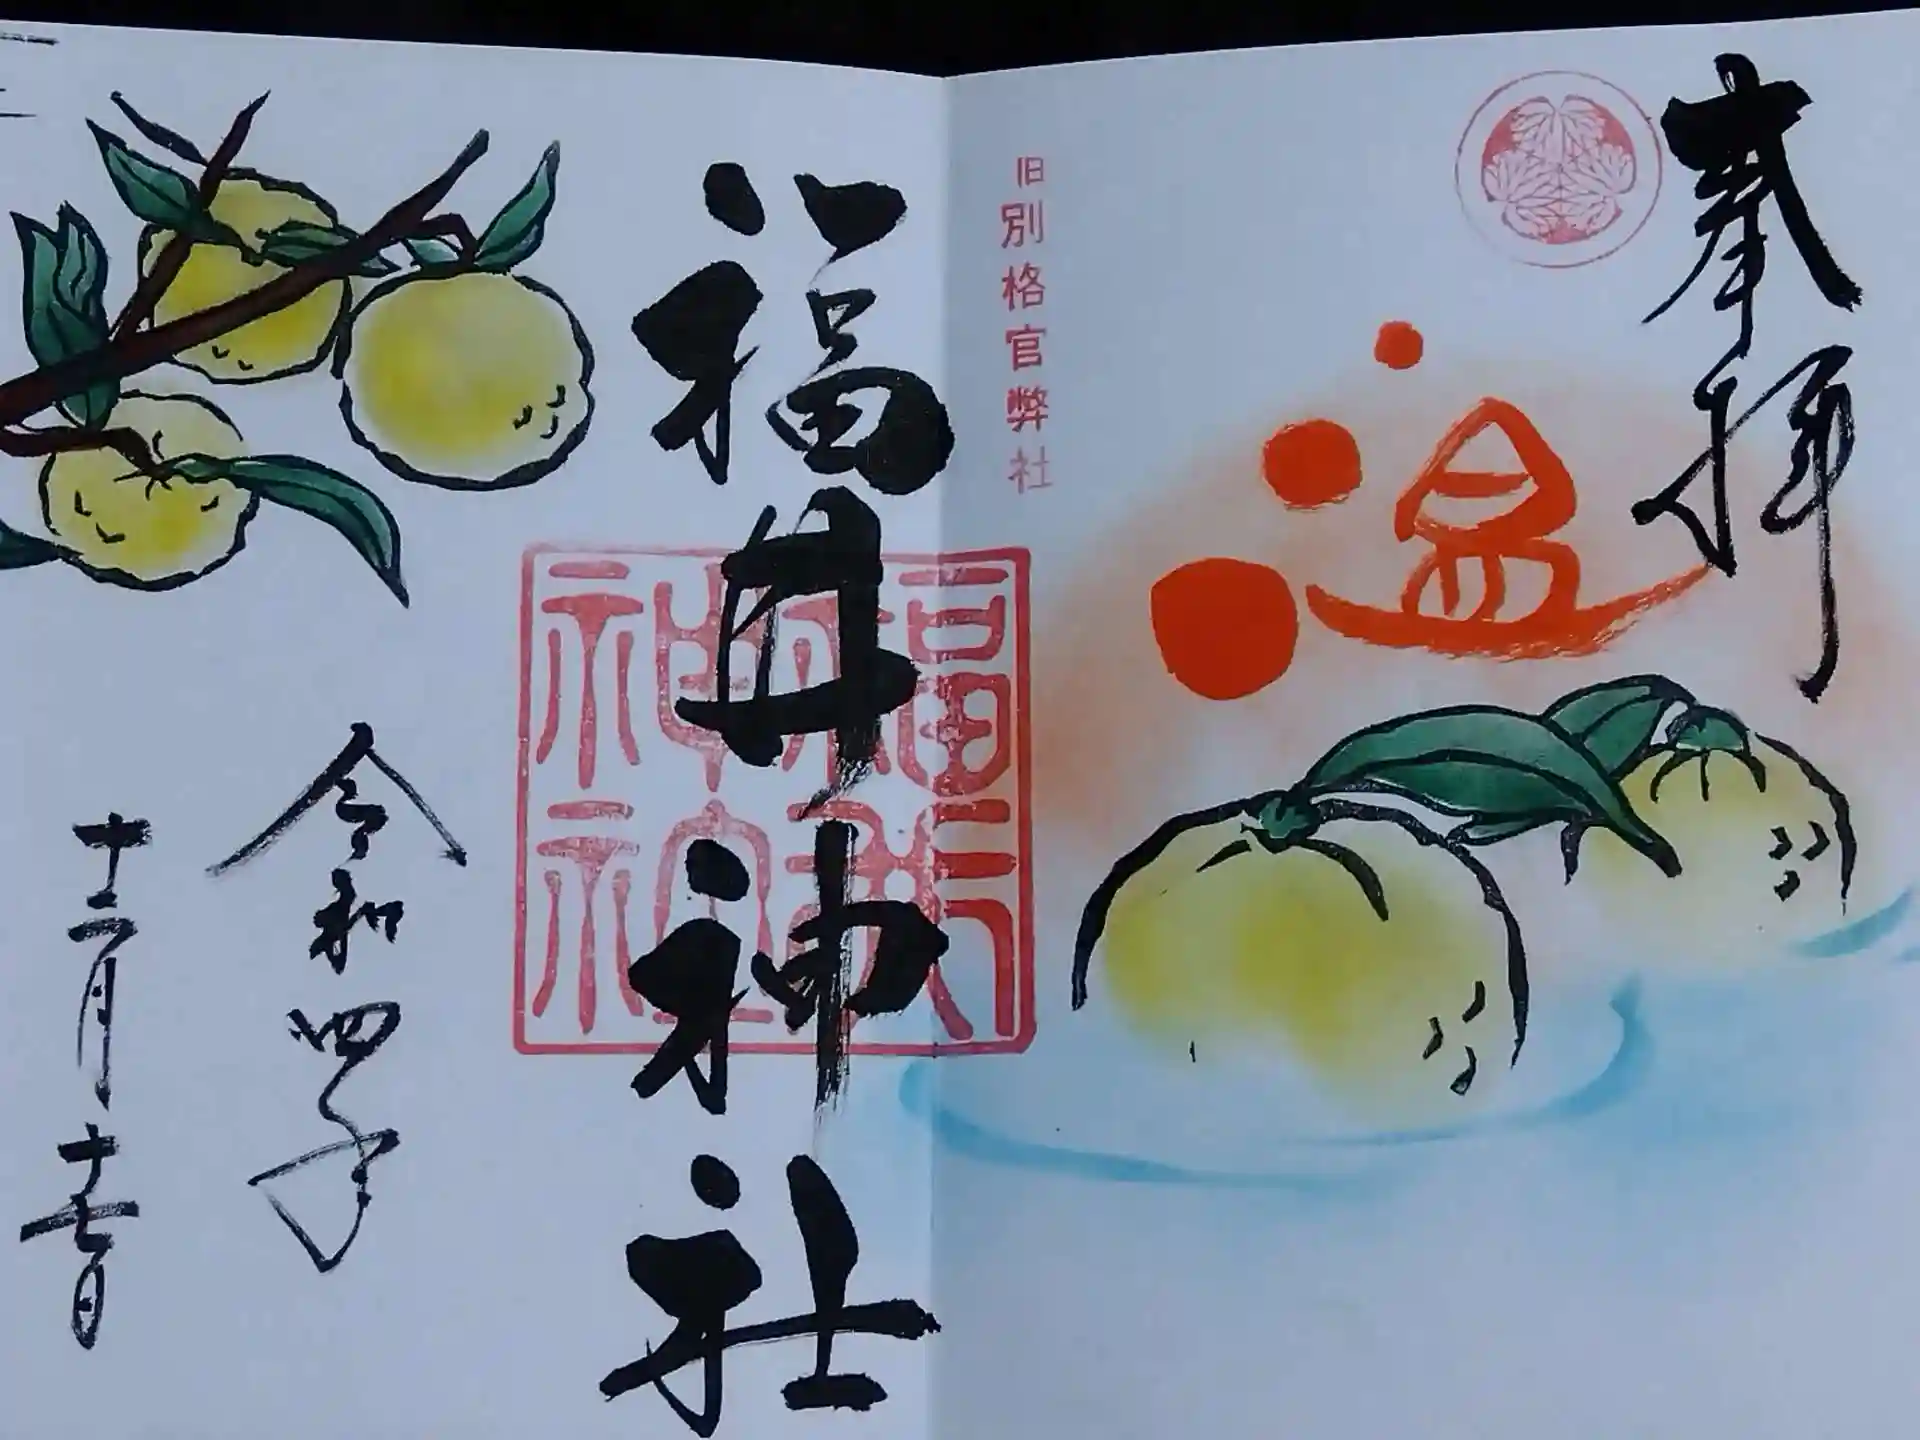 奉拝
温
旧別格官弊社
福井神社
福井神社
令和四年
十二月十七日